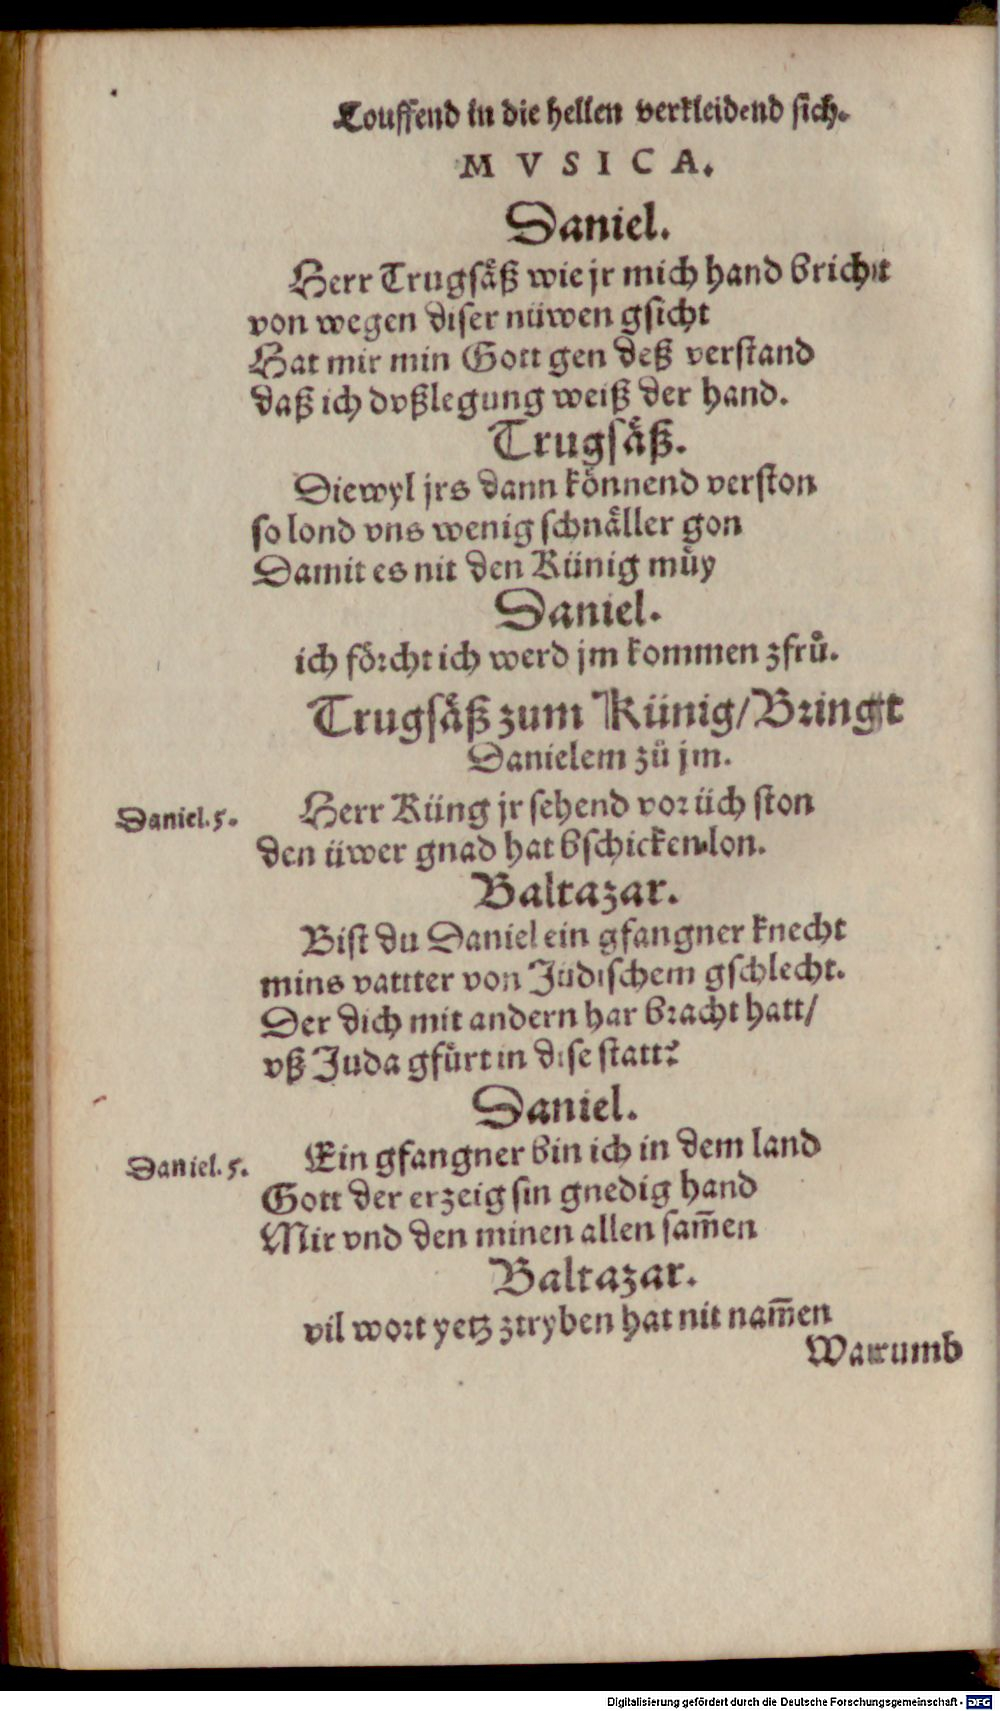 Louffend in die hellen verkleidend sich.
MVSICA.
Daniel.
Herr Trugsäß wie jr mich hand bricht
von wegen diser nüwen gsicht
Hat mir min Gott gen deß verstand
daß ich vßlegung weiß der hand.
Trugsäß.
Diewyl jrs dann könnend verston
so lond vns wenig schnäller gon
Damit es nit den Künig müy
Daniel.
ich förcht ich werd jm kommen zfrů.
Trugsäß zum Künig/Bringt
Danielem zů jm.
Daniel.5. Herr Küng jr sehend vor üch ston
den üwer gnad hat bschicken lon.
Baltazar.
Bist du Daniel ein gfangner knecht
mins vattter von Jüdischem gschlecht.
Der dich mit andern har bracht hatt/
vß Juda gfürt in dise statt?
Daniel.
Daniel.5. Ein gfangner bin ich in dem land
Gott der erzeig sin gnedig hand
Mir vnd den minen allen sam̅en
Baltazar.
vil wort yetz ztryben hat nit nam̅en
Warumb
Digitalisierung gefördert durch die Deutsche Forschungsgemeinschaft - DFG